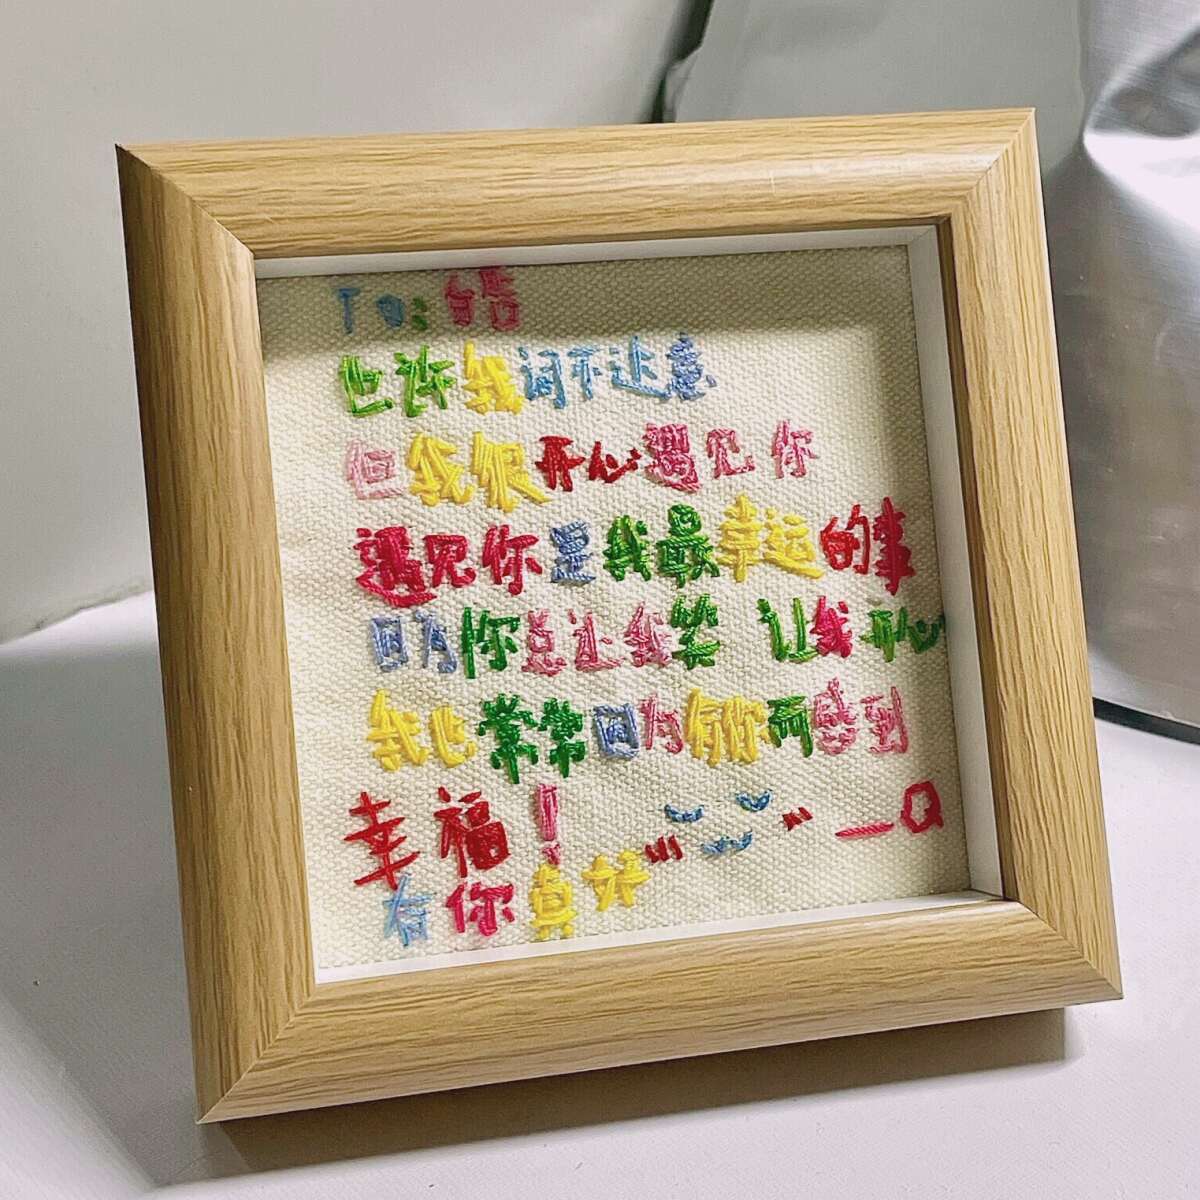 To:
也许我词不达意
但我很开心遇见你
遇见你是我最幸运的事
因为你总让我笑 让我开心
我也常常因为有你而感到
幸福!
有你真好 —Q